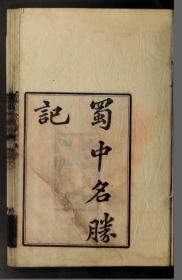 蜀中名勝
記